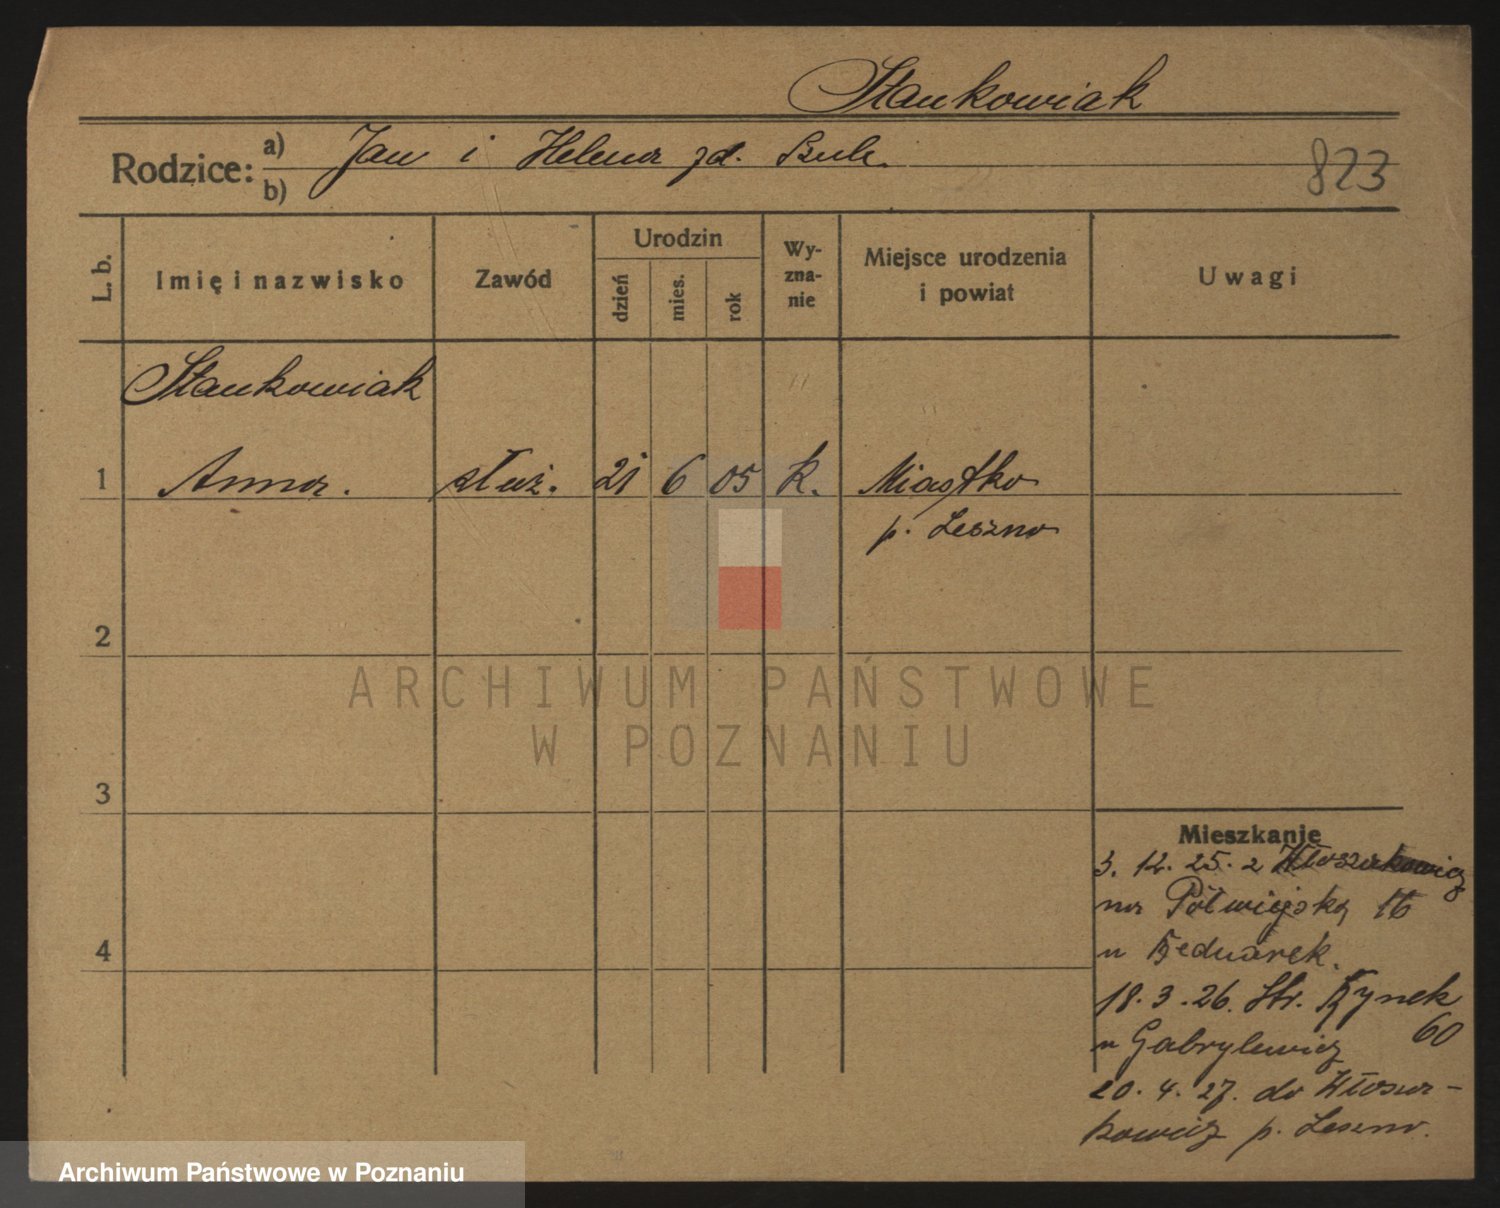 Stankowiak
Rodzice: a) Jan i Helena zd.
b)
823
L. b.
Imię i nazwisko
Zawód
Urodzin
dzień
mies.
rok
Wy-
zna-
nie
Miejsce urodzenia
i powiat
Uwagi
Stankowiak
1 Anna. służ. 21 6 05 k. Miastko
p. Leszno
2
3
4
Mieszkanie
3. 12. 25. z Włoszakowicz
na Półwiejską 16
u Bednarek.
18. 3. 26. Str. Rynek
60
u Gabrylewicz
20. 4. 27. do Włosza-
kowicz p. Leszno.
ARCHIWUM PAŃSTWOWE
W POZNANIU
Archiwum Państwowe w Poznaniu